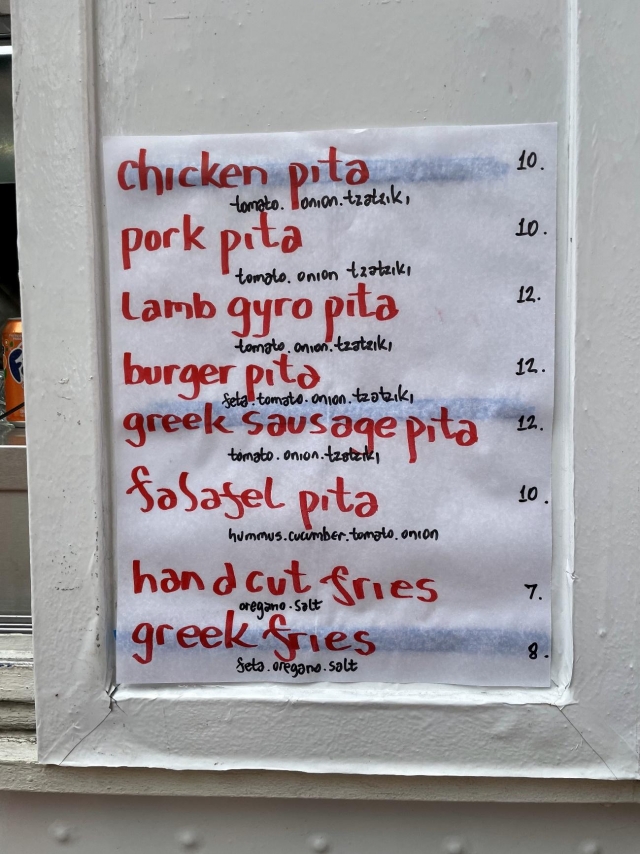 chicken pita 10.
tomato. onion. tzatziki
pork pita 10.
tomato. onion tzatziki
Lamb gyro pita 12.
tomato. onion. tzatziki
burger pita 12.
feta. tomato. onion. tzatziki
greek sausage pita 12.
tomato. onion. tzatziki
falafel pita 10.
hummus. cucumber. tomato. onion
hand cut fries 7.
oregano. salt
greek fries 8.
feta. oregano. salt